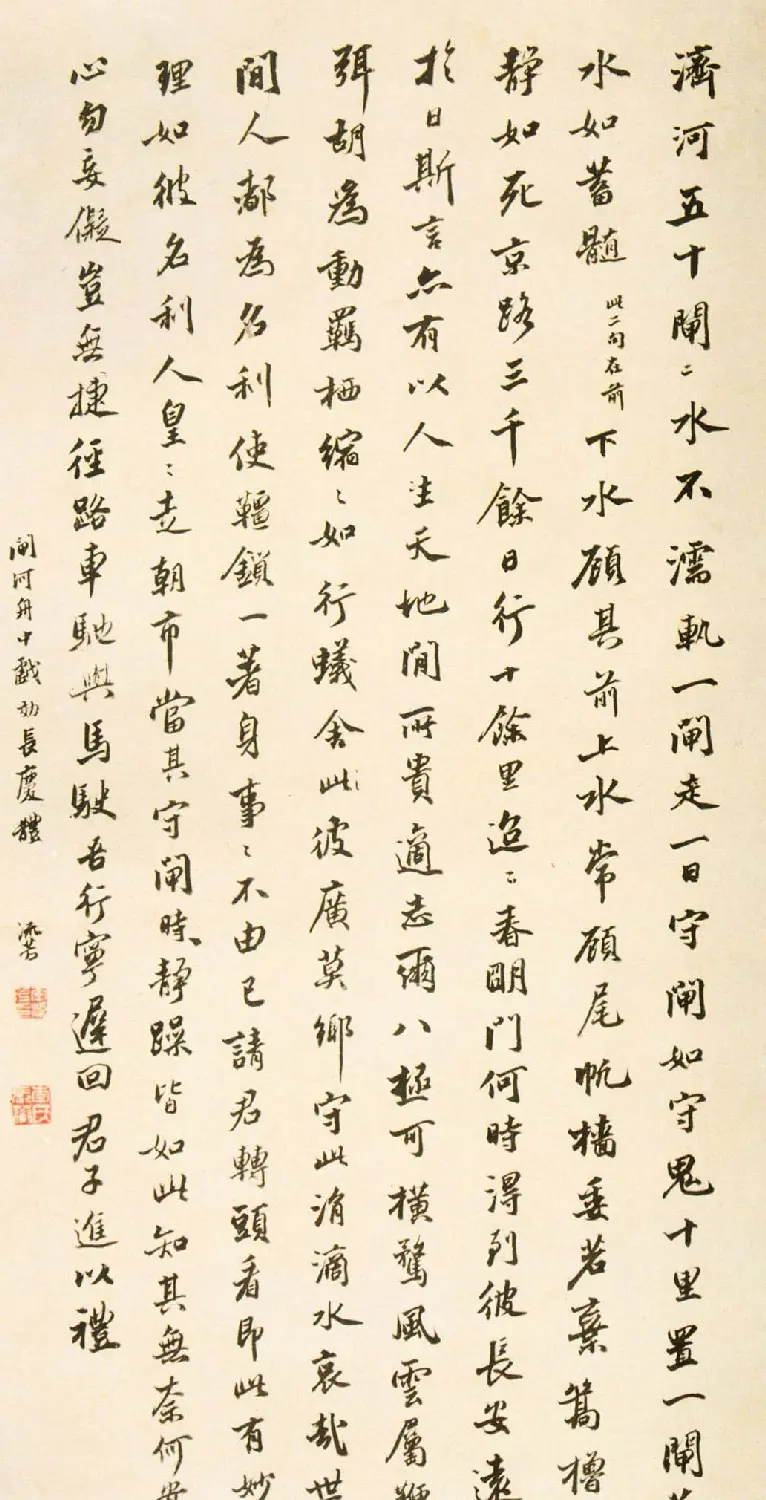 濟河五十閘〻水不濡軌一閘走一日守閘如守鬼十里置一閘蓄
水如蓄髓此二句在前下水顧其前上水常顧尾帆檣委若棄篙櫓
靜如死京路三千餘日行十餘里迢〻春明門何時得到彼長安遠
於日斯言亦有以人生天地間所貴適志爾八極可橫騖風雲屬鞭
弭胡為動羈栖縮〻如行蟻舍此彼廣莫鄉守此涓滴水哀哉世
間人都為名利使韁鎖一著身事〻不由己請君轉頭看即此有妙
理如彼名利人皇〻走朝市當其守閘時靜躁皆如此知其無奈何安
心勿妄儗豈無捷徑路車馳與馬駛吾行寧遲回君子進以禮
閘河舟中戲效長慶體 流芳